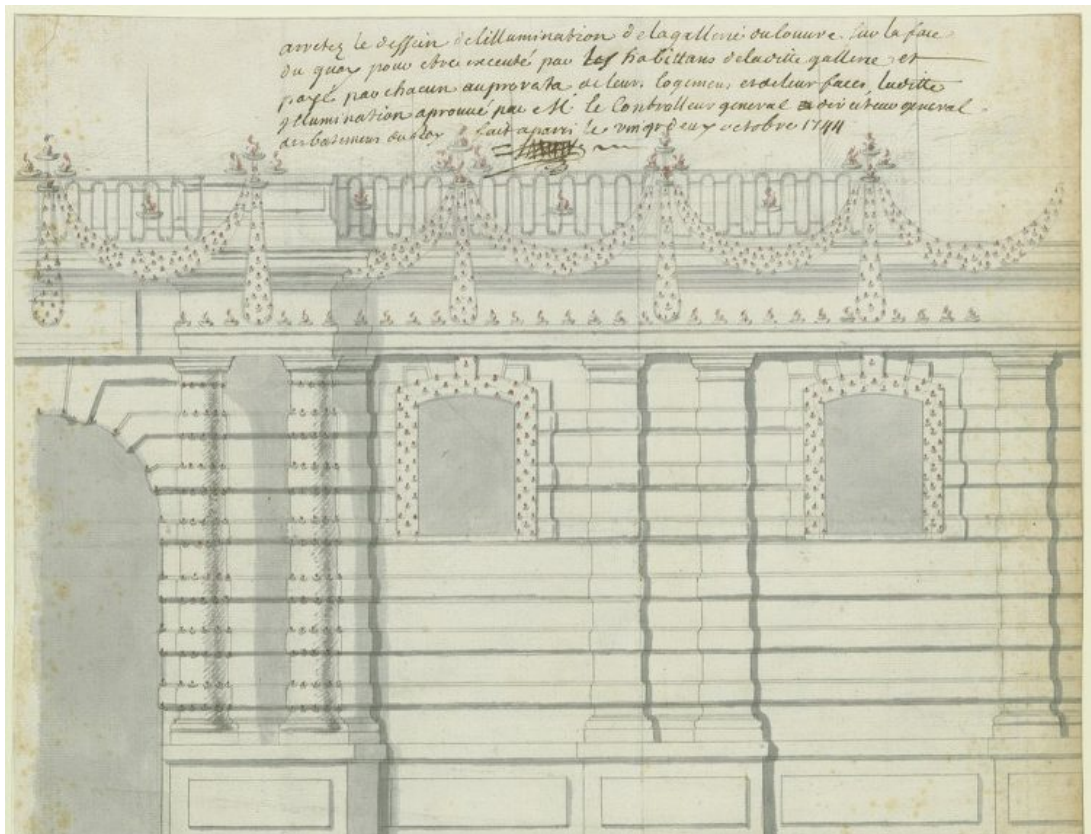 arretez le dessein de lillumination de la gallerie du louvre. sur la face
du quay pour etre executé par les habittans de laditte gallerie et
payé par chacun au prorata de leurs logemens et de leur faces, laditte
illumination aprouvé par M. le Controlleur general directeur general
des batimens du Roy fait a paris le vingt deux octobre 1744